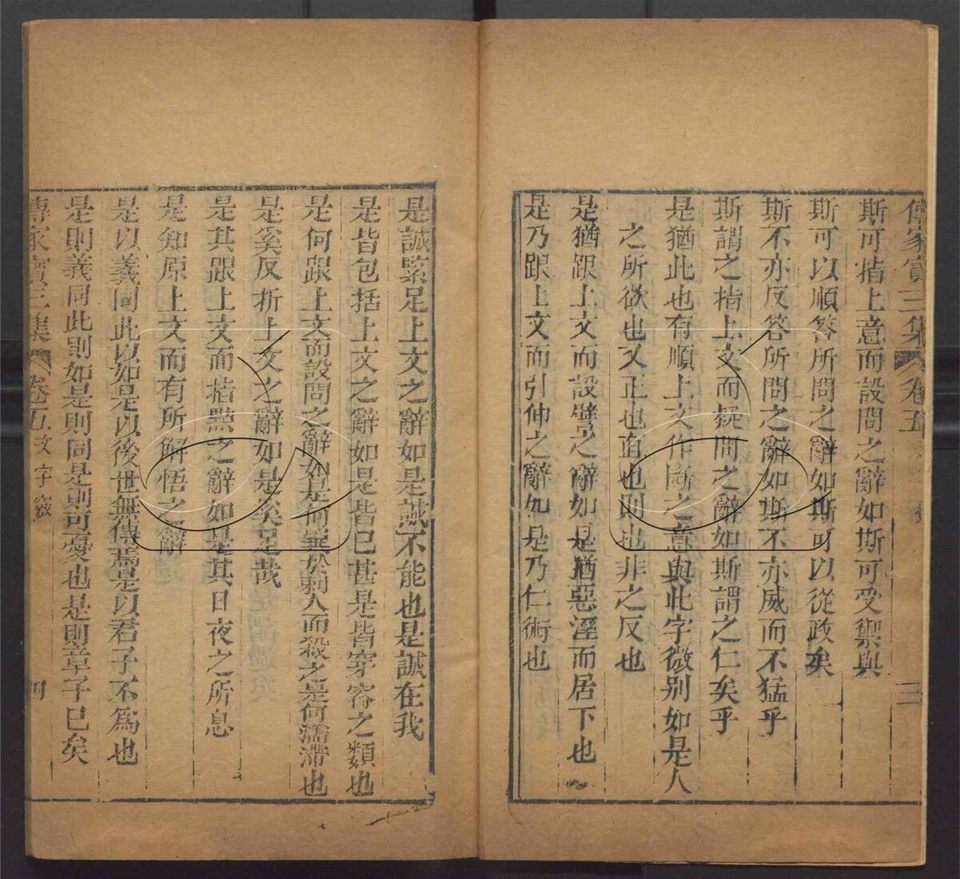 傳家寳三集 卷五 三
斯可 揩上意而設問之辭如斯可受禦與
斯可以 順答所問之辭如斯可以從政矣
斯不亦 反答所問之辭如斯不亦威而不猛乎
斯謂之 揩上文而疑問之辭如斯謂之仁矣乎
是 猶此也有順上文作斷之意與此字微别如是人
之所欲也又正也直也則也非之反也
是猶 跟上文而設譬之辭如是猶惡溼而居下也
是乃 跟上文而引伸之辭如是乃仁術也
是誠 緊足上文之辭如是誠不能也是誠在我
是皆 包括上文之辭如是皆已甚是皆穿窬之類也
是何 跟上文而設問之辭如是何異於刺人而殺之是何濡滯也
是奚 反折上文之辭如是奚足哉
是其 跟上文而揩點之辭如是其日夜之所息
是知 原上文而有所解悟之辭
是以 義同此以如是以後世無傳焉是以君子不為也
是則 義同此則如是則同是則可憂也是則章子已矣
傳家寳三集 卷五 文字竅 四